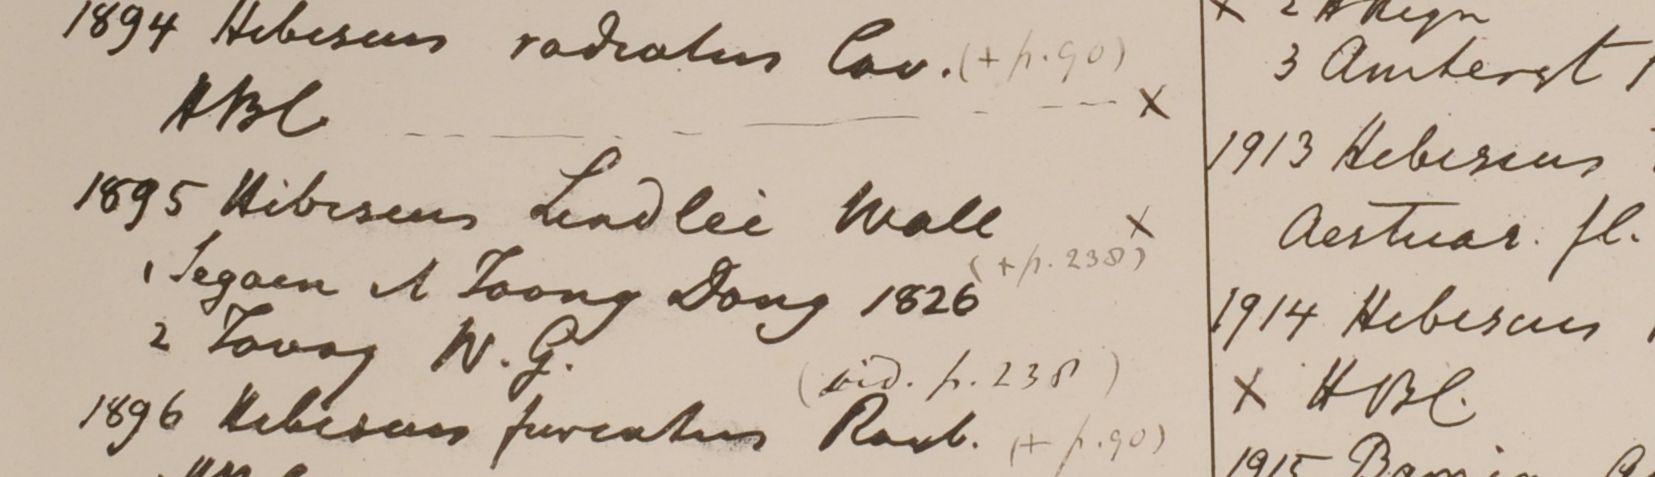 1894 Hibiscus radiatus Cav. (+ p. 90)
HBC x
1895 Hibiscus Lindlei Wall x
1 Segaen A Toong Dong 1826 (+ p. 238)
2 Tavoy W. G.
(vid. p. 238)
1896 Hibiscus furcatus Roxb. (+ p. 90)
x 2
3 Amherst
1913 Hibiscus
Aestuar. fl.
1914 Hibiscus
x HBC.
1915